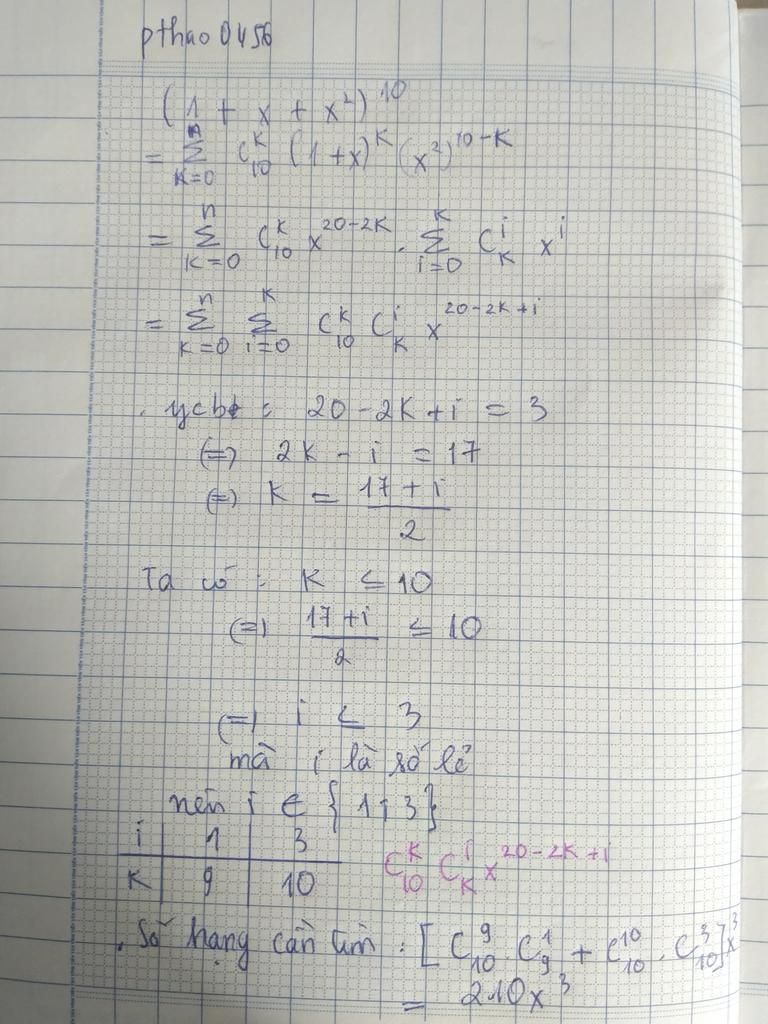 pthao0456
(1 + x + x²)¹⁰
= Σ_{K=0}^{n} C_{10}^{K} (1+x)^{K} (x²)^{10-K}
= Σ_{K=0}^{n} C_{10}^{K} x^{20-2K} . Σ_{i=0}^{K} C_{K}^{i} x^{i}
= Σ_{K=0}^{n} Σ_{i=0}^{K} C_{10}^{K} C_{K}^{i} x^{20-2K+i}
. ycbt : 20 - 2K + i = 3
(=) 2K - i = 17
(=) K = (17 + i)/2
Ta có : K ≤ 10
(=) (17 + i)/2 ≤ 10
(=) i ≤ 3
mà i là số lẻ
nên i ∈ {1; 3}
i | 1 | 3
K | 9 | 10
C_{10}^{K} C_{K}^{i} x^{20-2K+i}
. Số hạng cần tìm : [C_{10}^{9} . C_{9}^{1} + C_{10}^{10} . C_{10}^{3}]x³
= 210x³